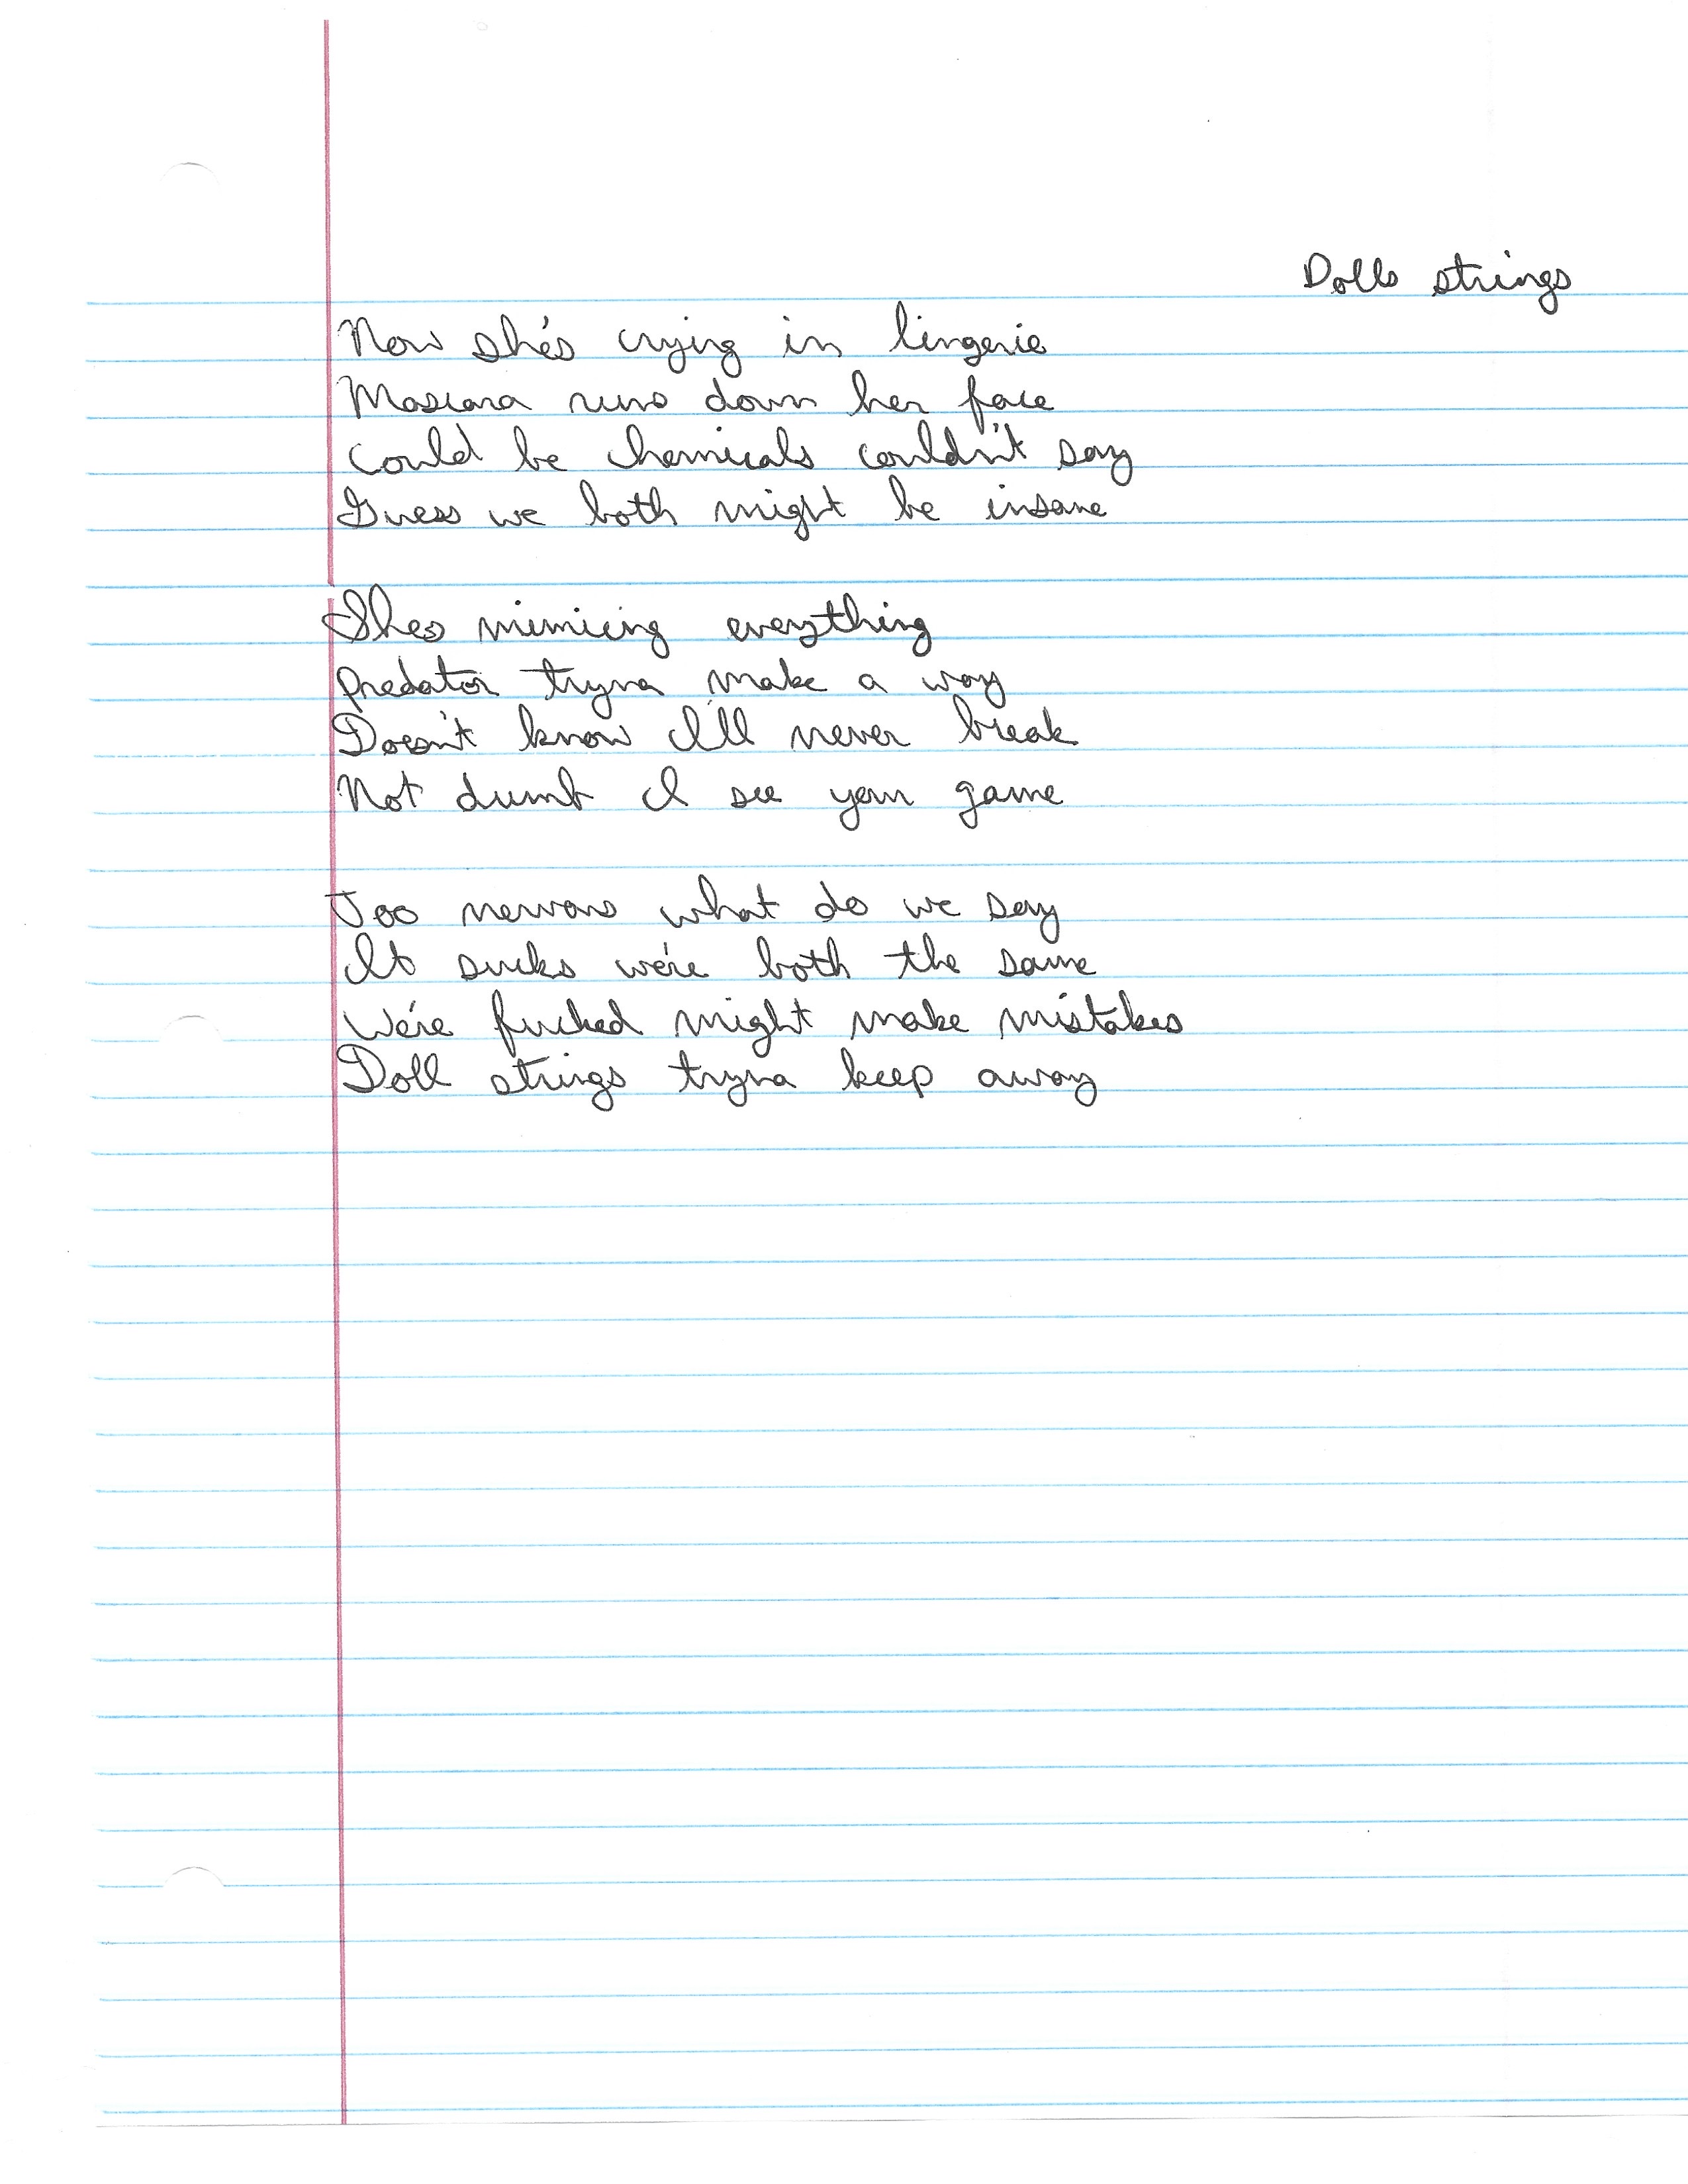 Dolls strings
Now she's crying in lingerie
Mascara runs down her face
Could be chemicals couldn't say
Guess we both might be insane
Shes mimicing everything
predator tryna make a way
Doesn't know I'll never break
Not dumb I see your game
Too nervous what do we say
It sucks we're both the same
We're fucked might make mistakes
Doll strings tryna keep away